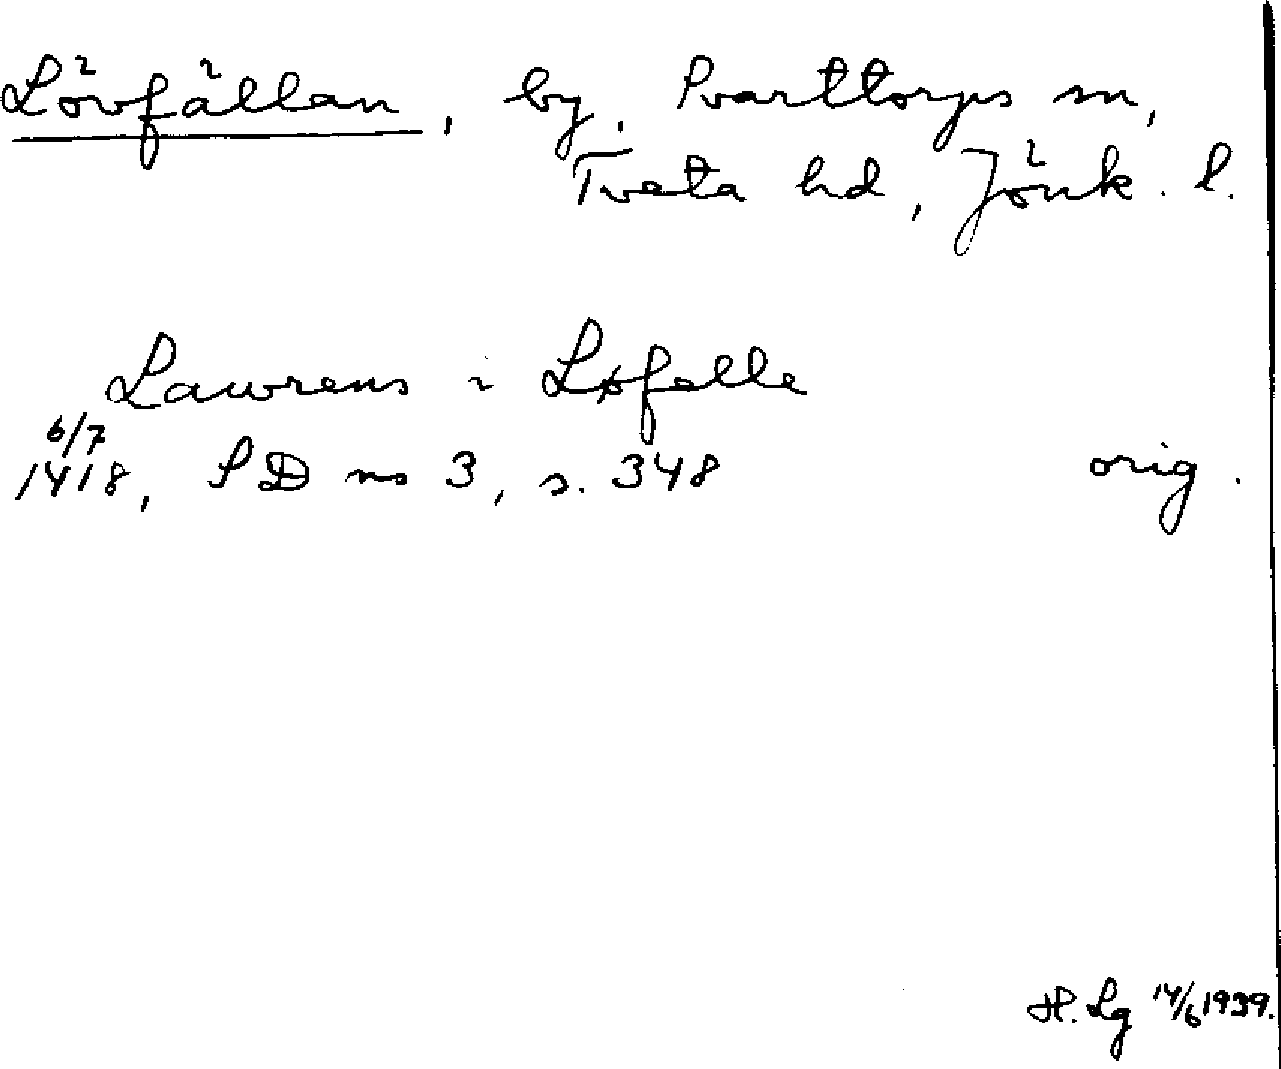 Lövfällan, by, Barttorps sn,
Tveta hd, Jönk. l.
Lawrens i Løfalle
6/7
1418, SD ns 3, s. 348 orig.
H. Lg 14/6 1939.